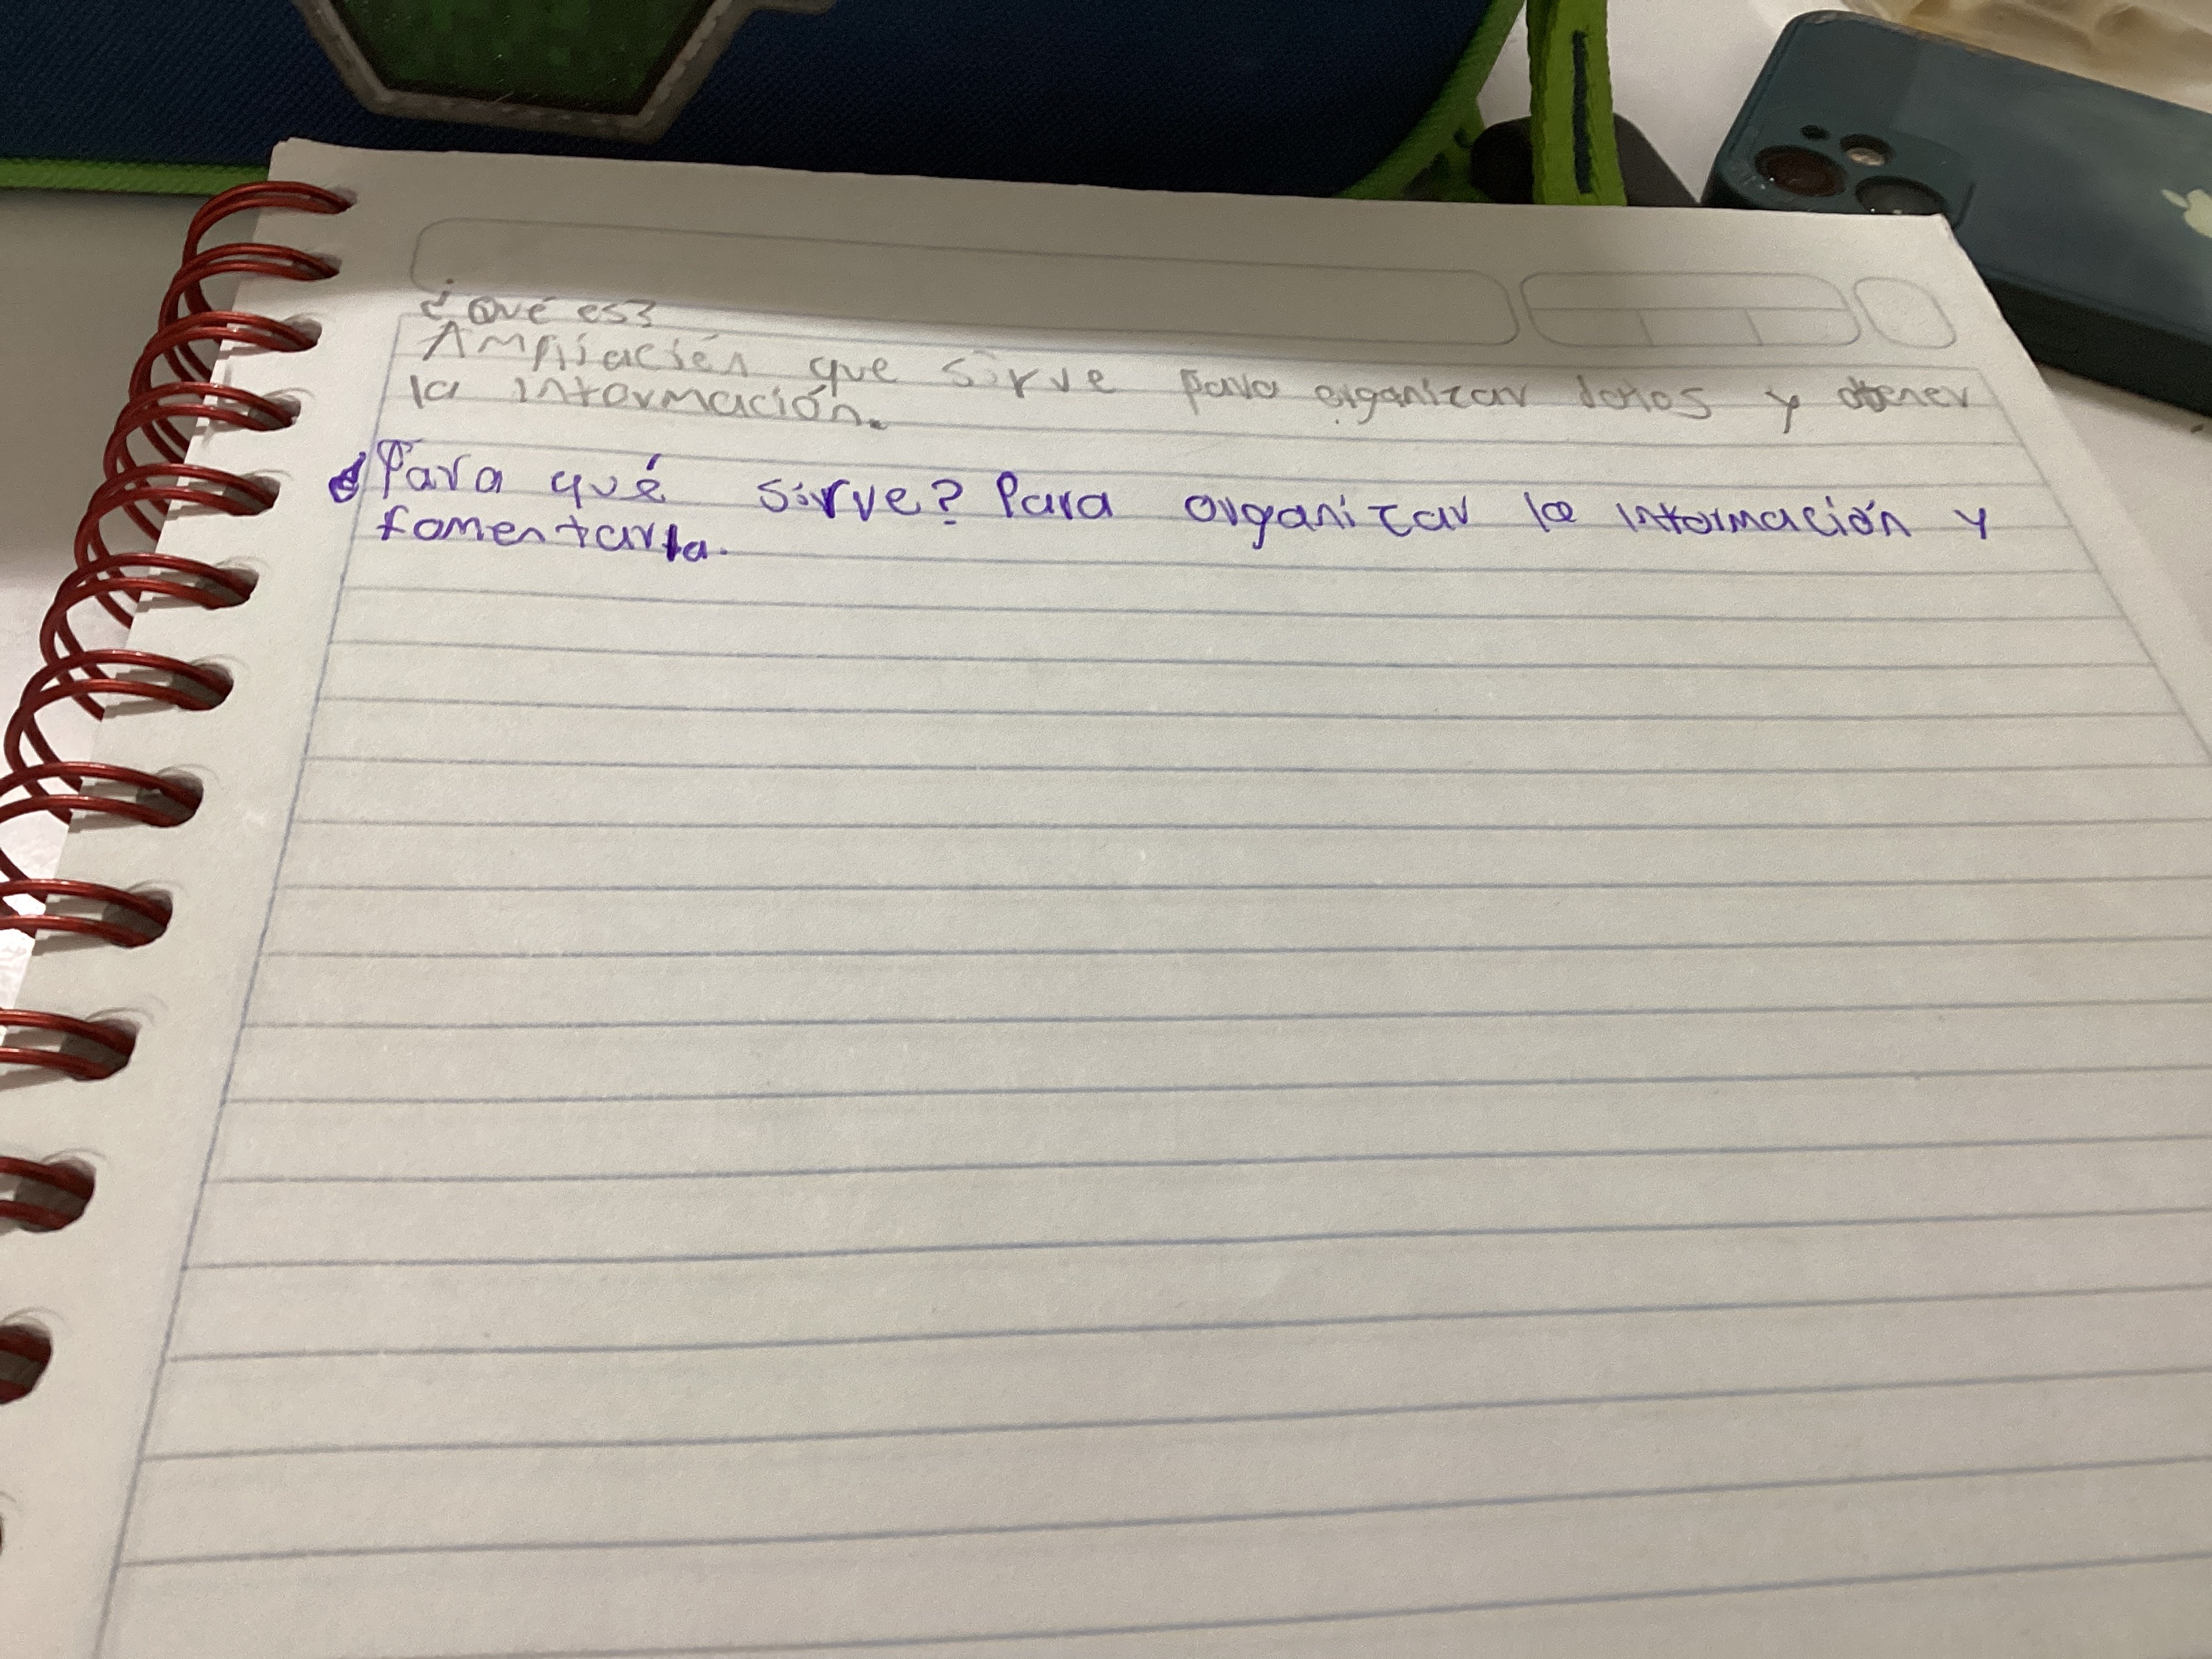 ¿Qué es?
Ampliación que sirve para organizar datos y obtener
la información.
¿Para qué sirve? Para organizar la información y
fomentarla.